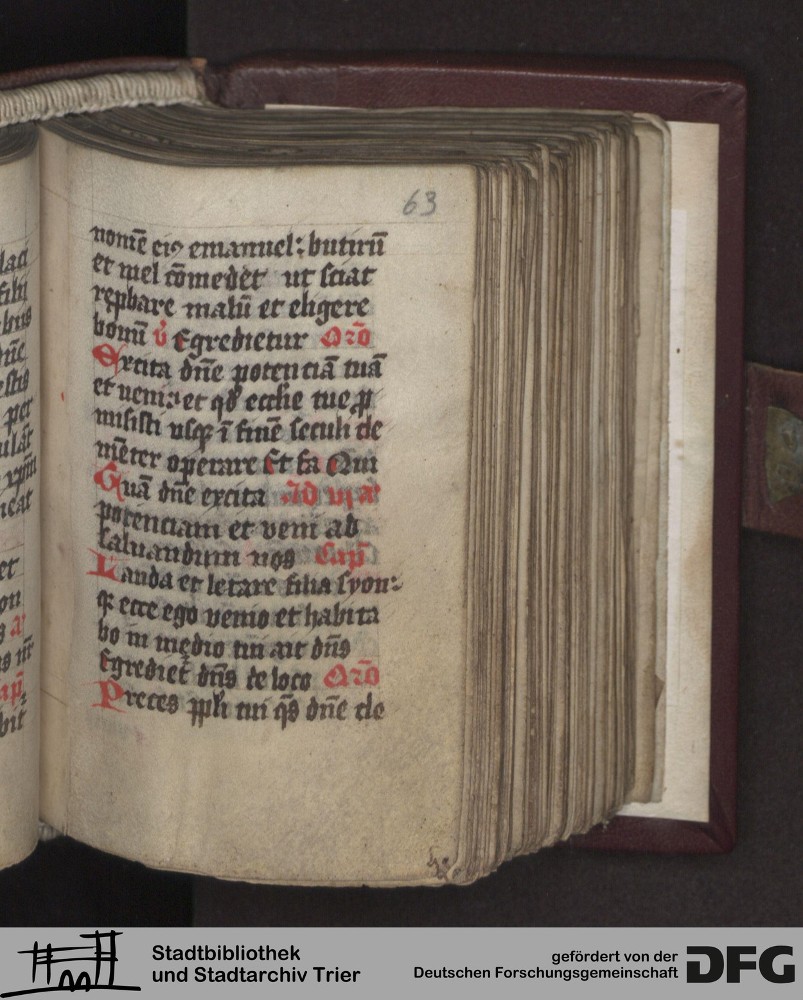 63
nomē eiꝰ emanuel: butirū
et mel cōmedet ut sciat
repbare malū et eligere
bonū v̄ Egredietur Orō
Excita dn̄e potenciā tuā
et veni: et qd̄ ecclie tue ꝓ
misisti usqꝫ ī finē seculi de
mēter operare Et fa Qui
Quā dn̄e excita Ad vi aꝰ
potenciam et veni ad
saluandum nos Cap̄
Lauda et letare filia syon:
qꝛ ecce ego venio et habita
bo in medio tui ait dn̄s
Egrediet̄ dn̄s de loco Orō
Preces ppl̄i tui q̄s dn̄e cle
Stadtbibliothek
und Stadtarchiv Trier
gefördert von der
Deutschen Forschungsgemeinschaft
DFG